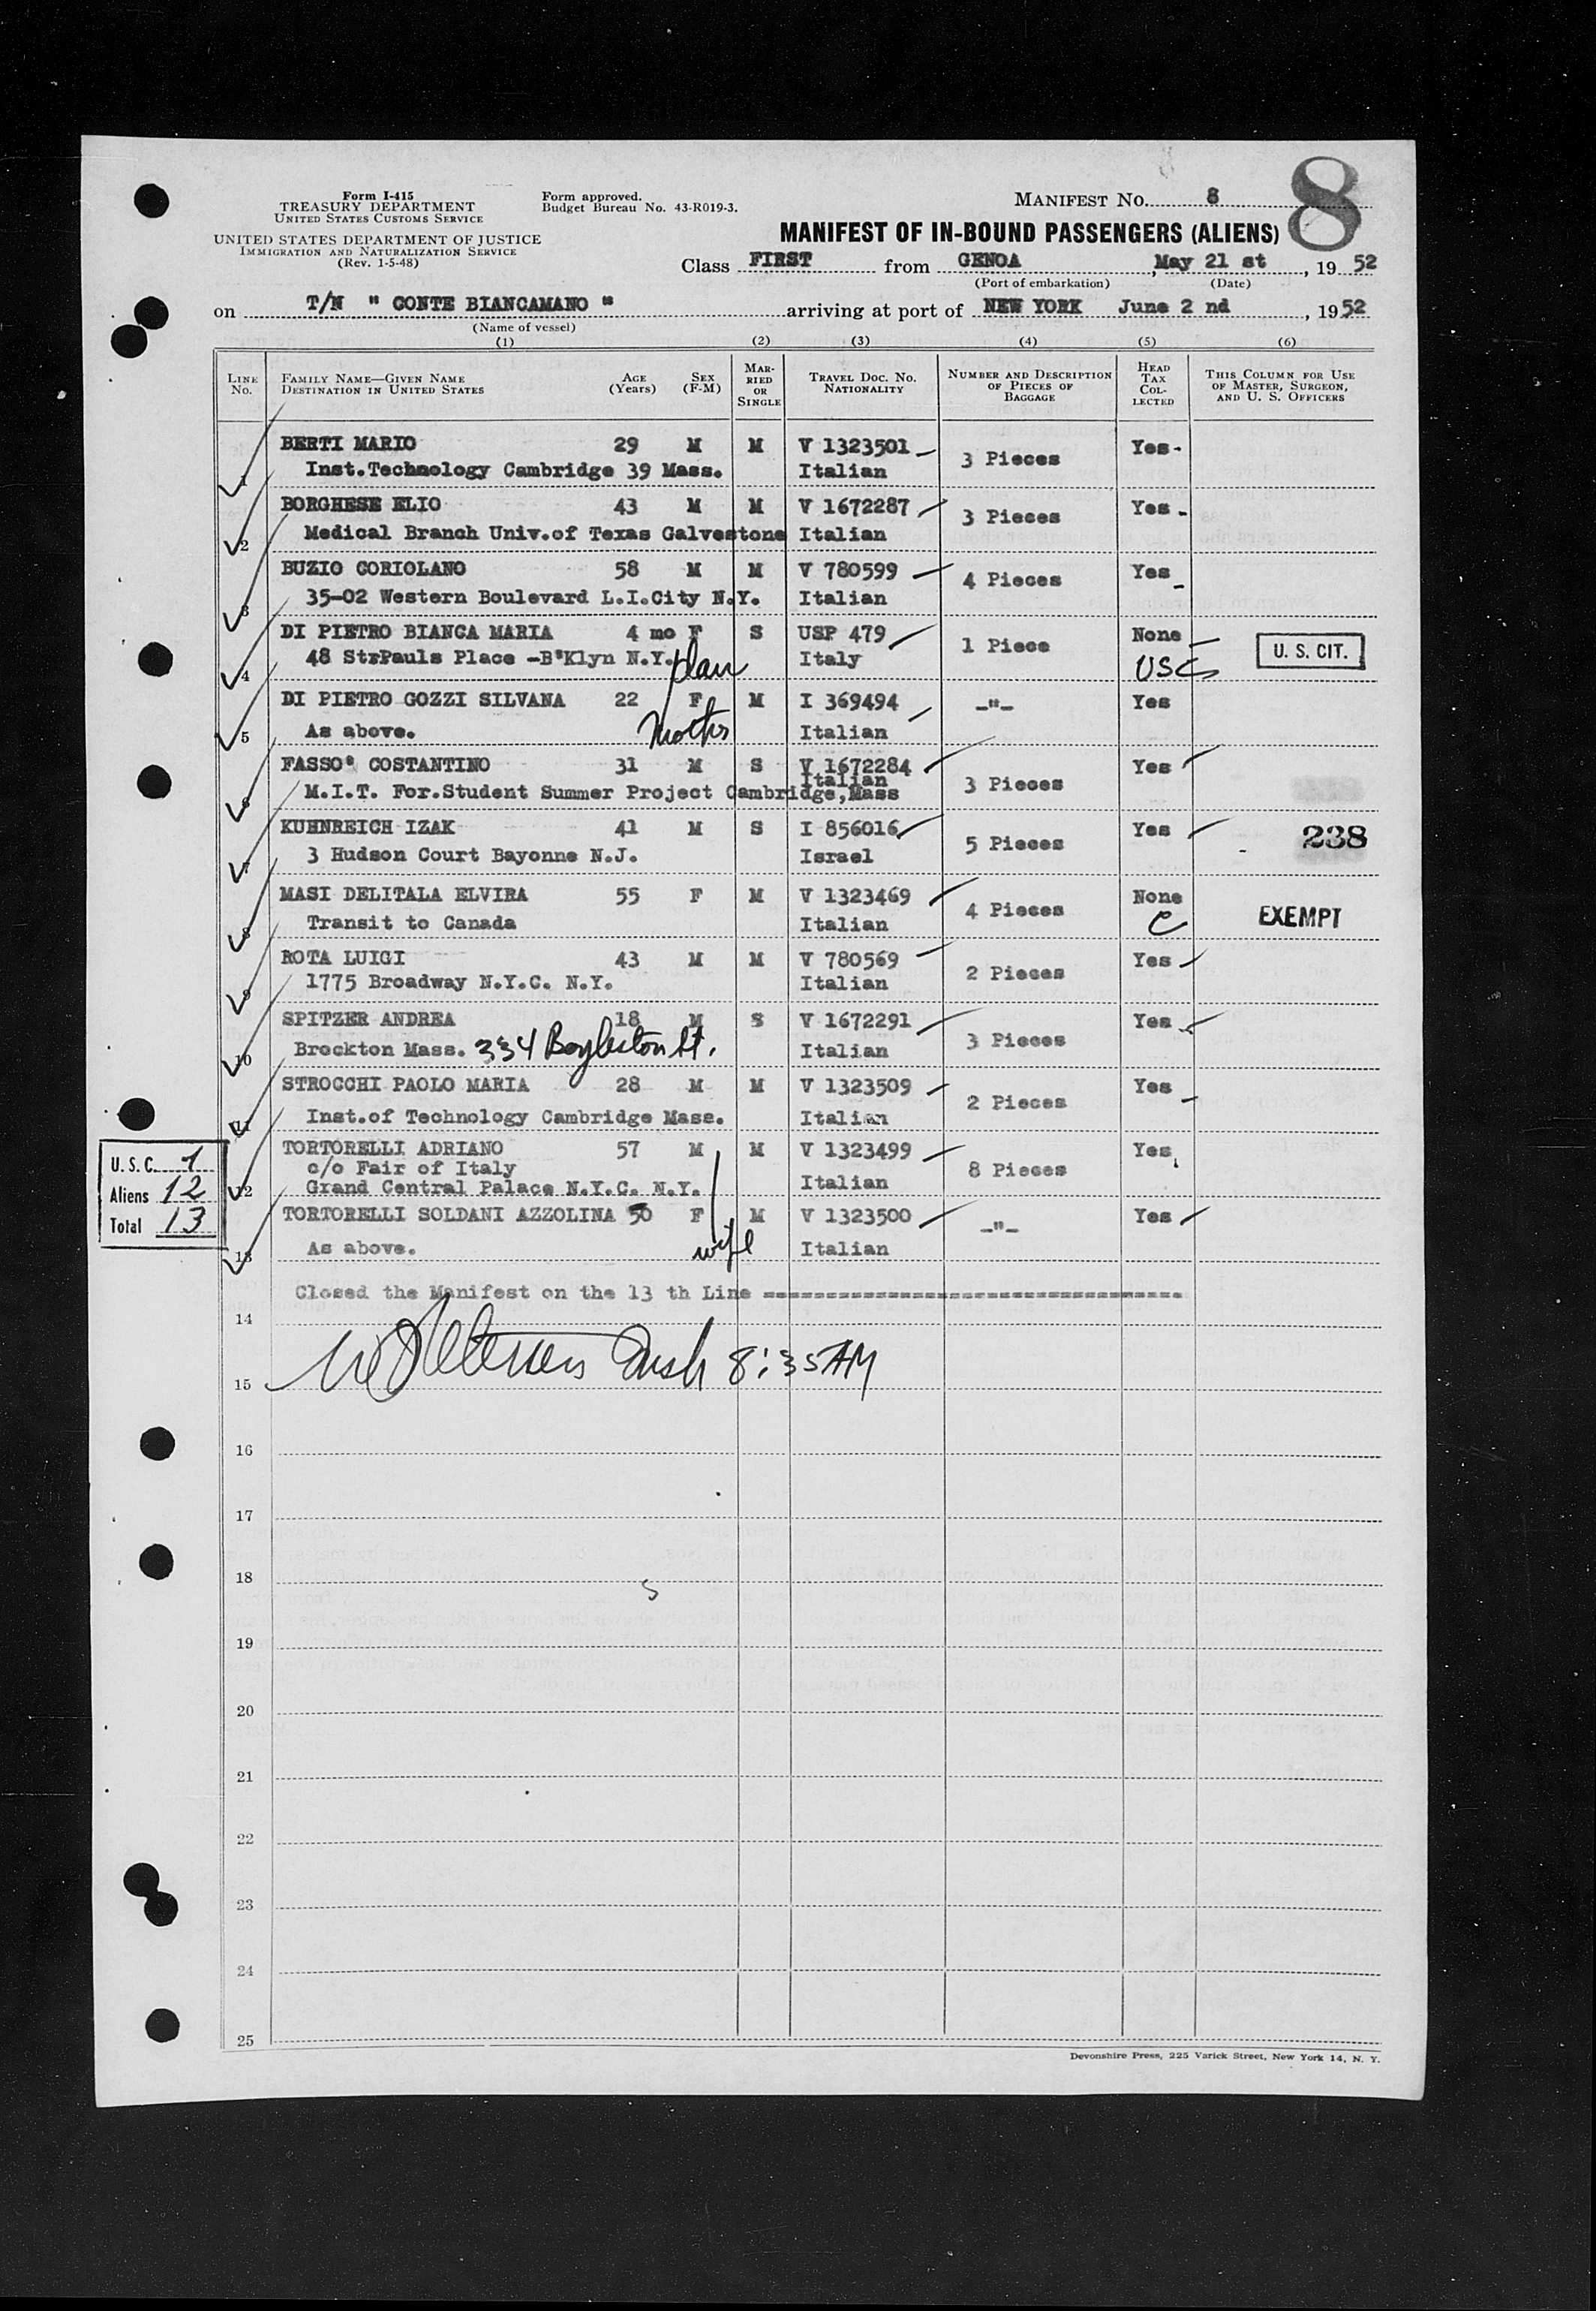 8
Form I-415
TREASURY DEPARTMENT
UNITED STATES CUSTOMS SERVICE
Form approved.
Budget Bureau No. 43-R019-3.
MANIFEST No. 8
UNITED STATES DEPARTMENT OF JUSTICE
IMMIGRATION AND NATURALIZATION SERVICE
(Rev. 1-5-48)
MANIFEST OF IN-BOUND PASSENGERS (ALIENS)
Class FIRST from GENOA, May 21 st, 19 52
(Port of embarkation) (Date)
on T/N " CONTE BIANCAMANO " arriving at port of NEW YORK June 2 nd, 19 52
(Name of vessel)
(1) (2) (3) (4) (5) (6)
LINE No. FAMILY NAME—GIVEN NAME DESTINATION IN UNITED STATES AGE (Years) SEX (F-M) MARRIED OR SINGLE TRAVEL DOC. NO. NATIONALITY NUMBER AND DESCRIPTION OF PIECES OF BAGGAGE HEAD TAX COLLECTED THIS COLUMN FOR USE OF MASTER, SURGEON, AND U. S. OFFICERS
BERTI MARIO 29 M M V 1323501 3 Pieces Yes
1 Inst.Technology Cambridge 39 Mass. Italian
BORGHESE ELIO 43 M M V 1672287 3 Pieces Yes
2 Medical Branch Univ.of Texas Galvestone Italian
BUZIO CORIOLANO 58 M M V 780599 4 Pieces Yes
3 35-02 Western Boulevard L.I.City N.Y. Italian
DI PIETRO BIANCA MARIA 4 mo F S USP 479 1 Piece None U. S. CIT.
4 48 StrPauls Place -B'Klyn N.Y. Italy USC
DI PIETRO GOZZI SILVANA 22 F M I 369494 -"- Yes
5 As above. Italian
FASSO' COSTANTINO 31 M S V 1672284 3 Pieces Yes
Italian
6 M.I.T. For.Student Summer Project Cambridge,Mass
KUHNREICH IZAK 41 M S I 856016 5 Pieces Yes 238
7 3 Hudson Court Bayonne N.J. Israel
MASI DELITALA ELVIRA 55 F M V 1323469 4 Pieces None EXEMPT
8 Transit to Canada Italian
ROTA LUIGI 43 M M V 780569 2 Pieces Yes
9 1775 Broadway N.Y.C. N.Y. Italian
SPITZER ANDREA 18 M S V 1672291 3 Pieces Yes
10 Brockton Mass. 334 Boyleston St. Italian
STROCCHI PAOLO MARIA 28 M M V 1323509 2 Pieces Yes
11 Inst.of Technology Cambridge Mass. Italian
TORTORELLI ADRIANO 57 M M V 1323499 8 Pieces Yes
c/o Fair of Italy
12 Grand Central Palace N.Y.C. N.Y. Italian
TORTORELLI SOLDANI AZZOLINA 50 F M V 1323500 -"- Yes
13 As above. wife Italian
U. S. C. 1
Aliens 12
Total 13
Closed the Manifest on the 13 th Line
14
15 8:35 AM
16
17
18
19
20
21
22
23
24
25
Devonshire Press, 225 Varick Street, New York 14, N. Y.